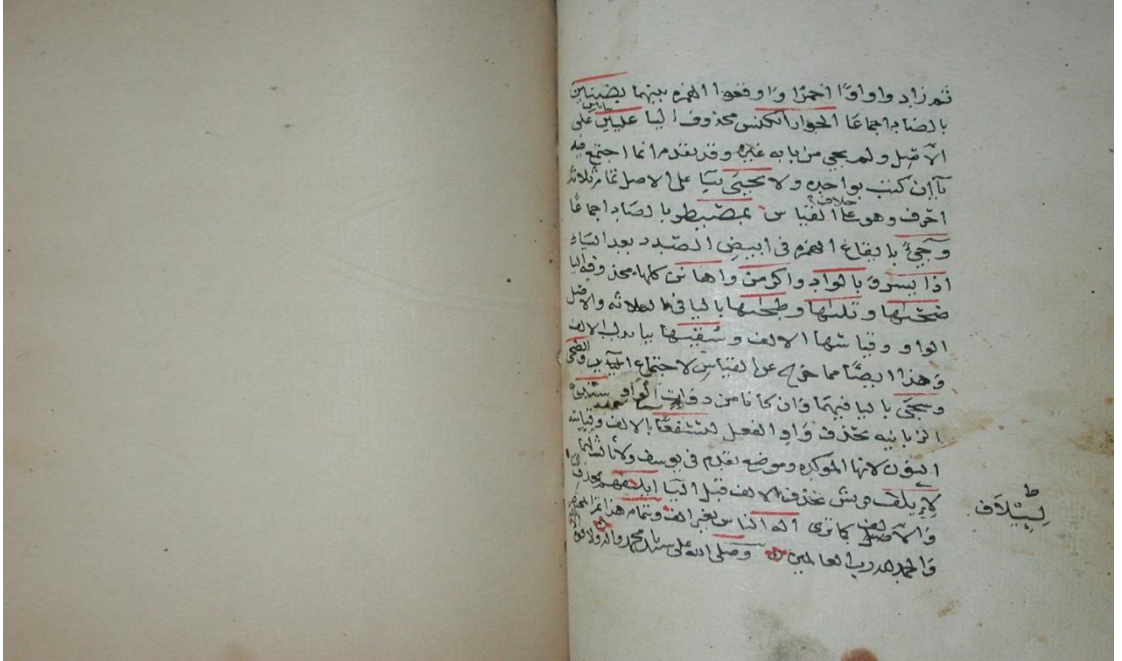 ثم زاد واواوًا احمرًا واوقعوا الهمزة بينهما بضنين
بالضاد اجماعًا الجوار الكنس محذوف اليا عليين بيايين على
الأصل ولم يجي من بابه غيره وقد تقدم انما اجتمع فيه
يآان كتب بواحدة ولا يحيى على الاصل تمام ثلاثة
احرف وهو على خلاف القياس بمصيطر بالصاد اجماعًا
وجيء بايقاع الهمزة في ابيض الصدد بعد الياء
اذا يسر بالواد واكرمن واهانن كلها محذوفة اليا
ضحىها وتلىها وطحىها باليا في الثلاثة والاصل
الواو وقياسها الالف وسقيىها بيا بدل الالف
وهذا ايضًا مما خرج عن القياس لاجتماع اليآيين والضحى
وسجى باليا فيهما وان كانا من ذوات الواو سندع
الزبانية بحذف واو الفعل لنسفعًا بالالف وقياسه
النون لانها الموكدة وموضعه تقدم في يوسف
لإيلف قريش بحذف الالف قبل اليا ايلفهم بحذف
والاصل كما ترى اله الناس بغير الف وتمام هذا
والحمد لله رب العالمين وصلى الله على سيدنا محمد واله
لإيلاف